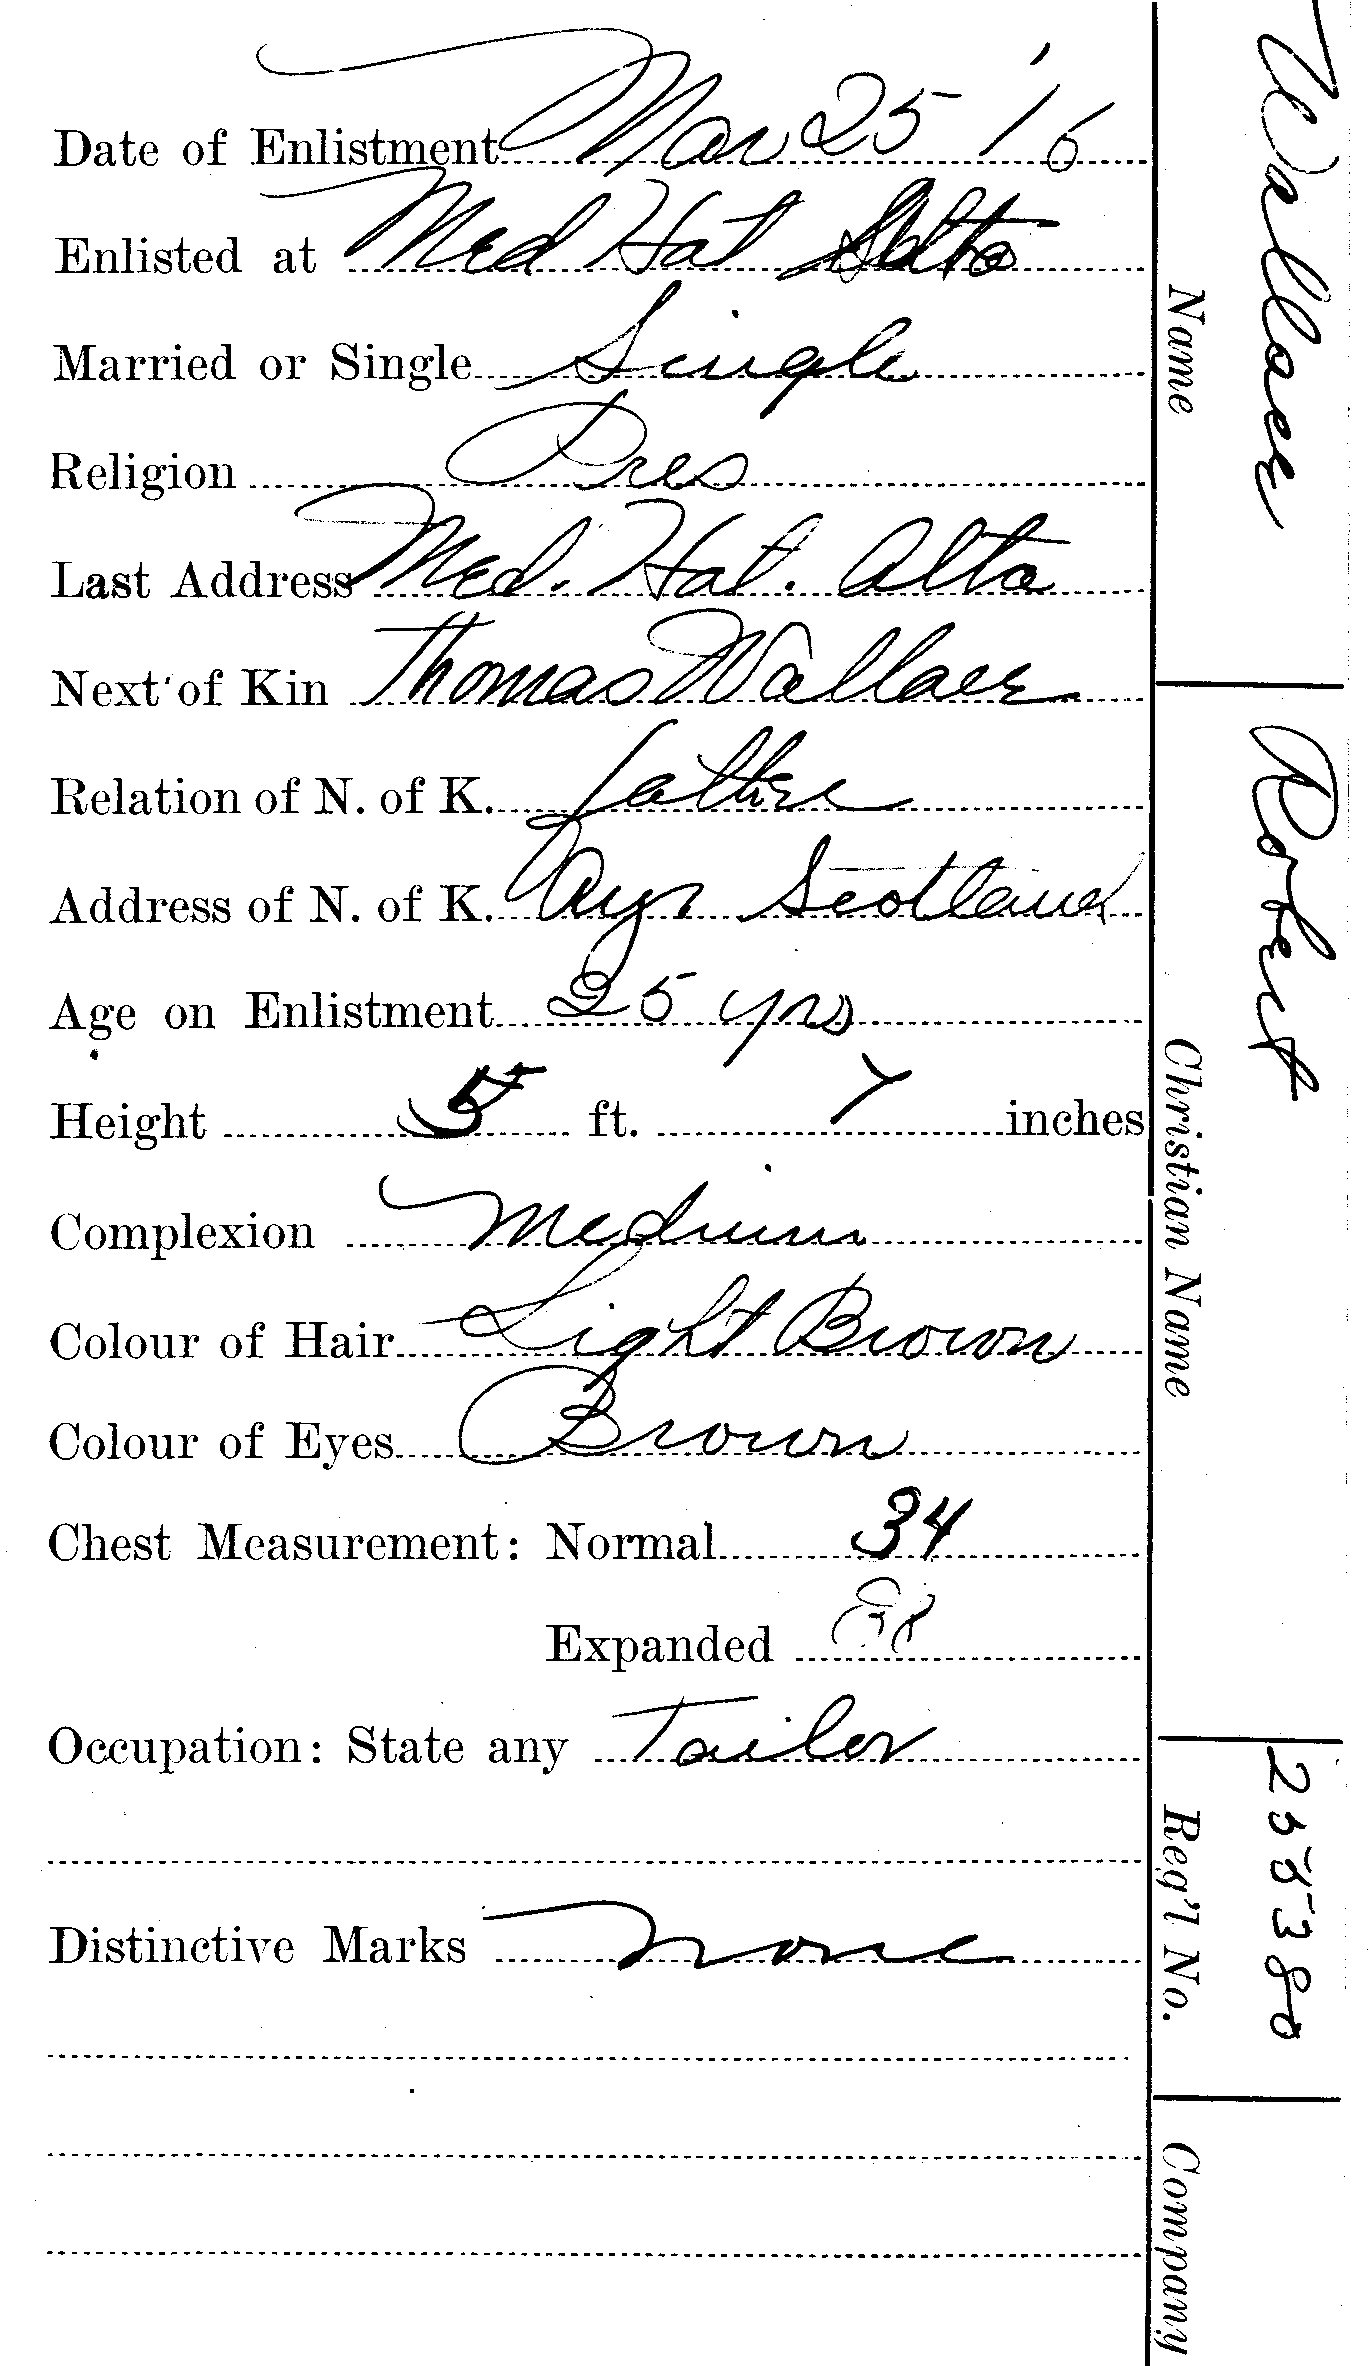 Date of Enlistment Mar 25 '16
Enlisted at Med Hat Alta
Married or Single Single
Religion Pres
Last Address Med. Hat. Alta
Next of Kin Thomas Wallace
Relation of N. of K. father
Address of N. of K. Ayr Scotland
Age on Enlistment 25 yrs
Height 5 ft. 7 inches
Complexion Medium
Colour of Hair Light Brown
Colour of Eyes Brown
Chest Measurement: Normal 34
Expanded
Occupation: State any Tailor
Distinctive Marks None
Wallace
Name
Robert
Christian Name
Reg'l No.
Company